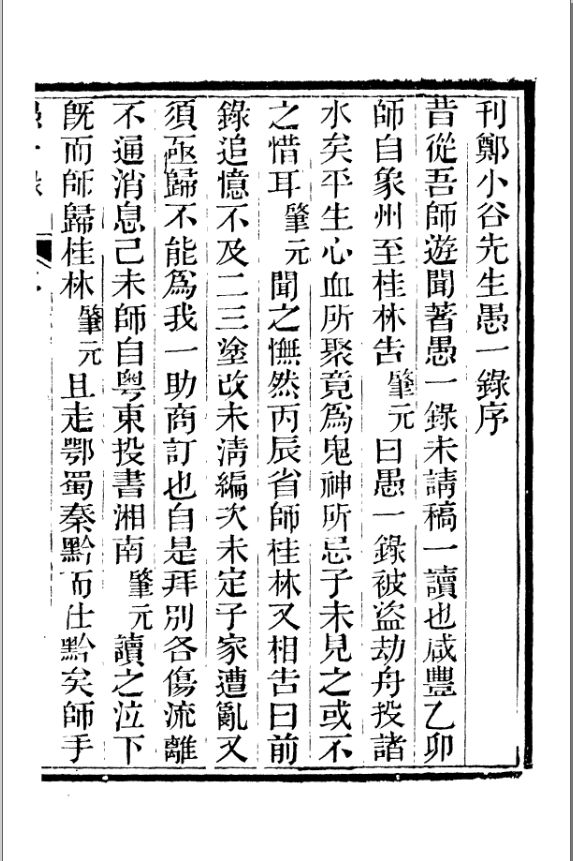 刊鄭小谷先生愚一錄序
昔從吾師遊聞著愚一錄未請稿一讀也咸豐乙卯
師自象州至桂林告肇元曰愚一錄被盜劫舟投諸
水矣平生心血所聚竟爲鬼神所忌子未見之或不
之惜耳肇元聞之憮然丙辰省師桂林又相告曰前
錄追憶不及二三塗改未清編次未定子家遭亂又
須亟歸不能爲我一助商訂也自是拜別各傷流離
不通消息己未師自粵東投書湘南肇元讀之泣下
旣而師歸桂林肇元且走鄂蜀秦黔而仕黔矣師手